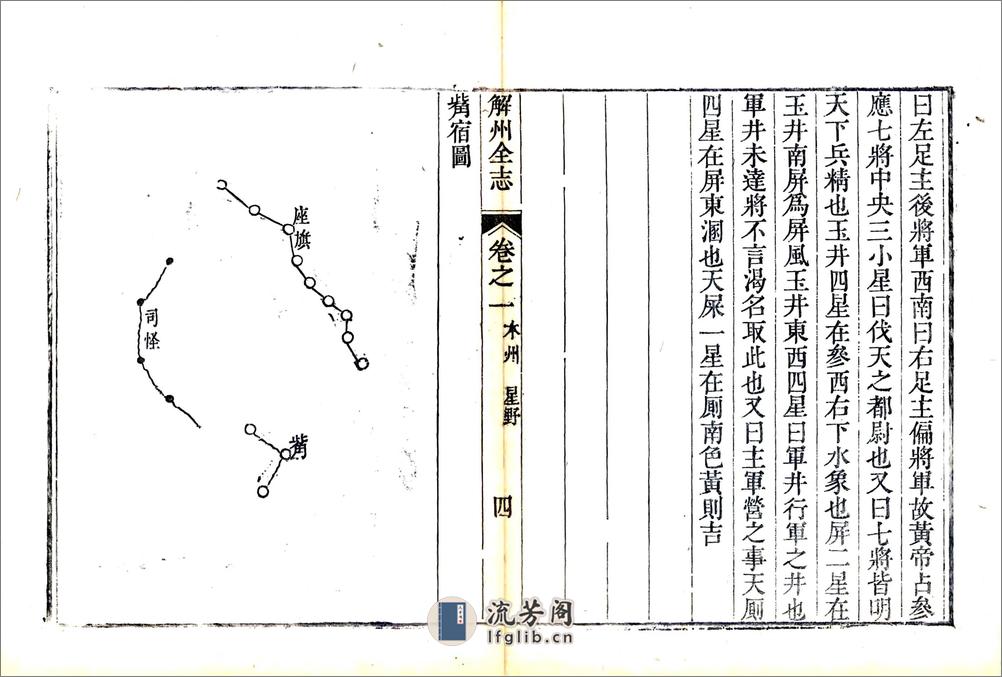 曰左足主後將軍西南曰右足主偏將軍故黃帝占參
應七將中央三小星曰伐天之都尉也又曰七將皆明
天下兵精也玉井四星在參西右下水象也屏二星在
玉井南屏爲屏風玉井東西四星曰軍井行軍之井也
軍井未達將不言渴名取此也又曰主軍營之事天厠
四星在屏東溷也天屎一星在厠南色黃則吉
解州全志
卷之一
本州 星野
四
觜宿圖
座旗
司怪
觜
流芳阁
lfglib.cn